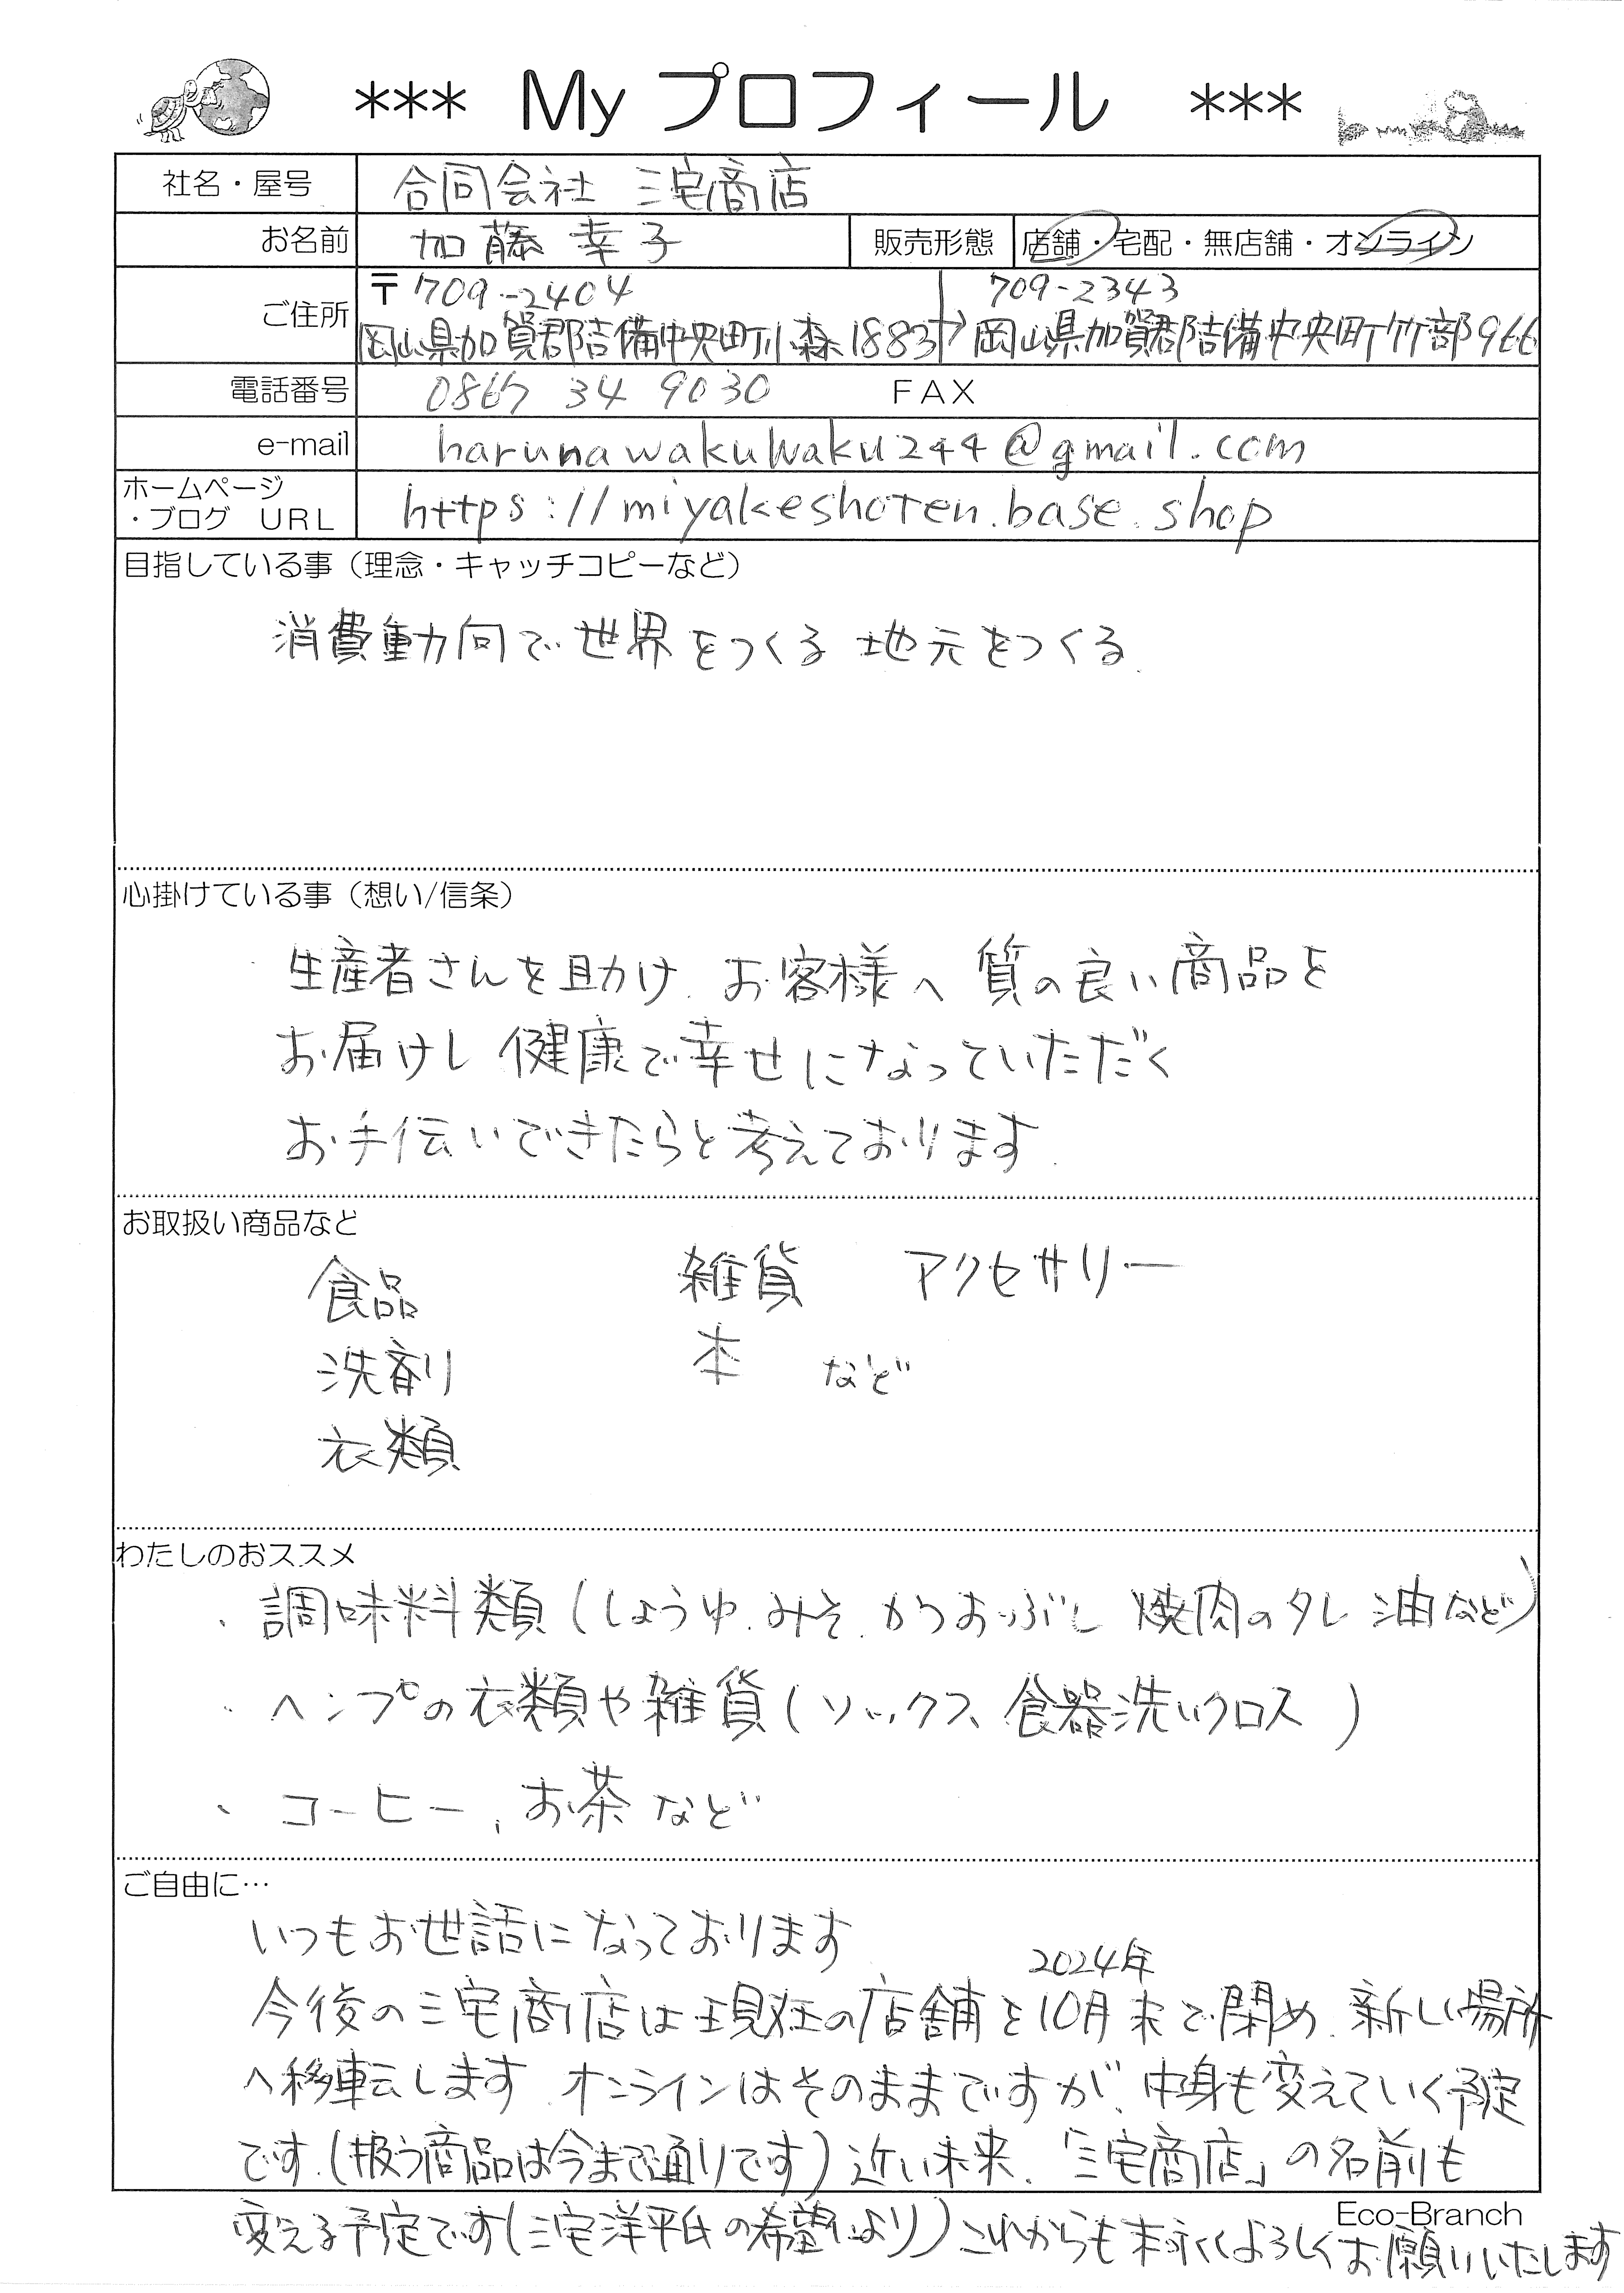 *** My プロフィール ***
社名・屋号 合同会社 三宅商店
お名前 加藤 幸子 販売形態 店舗・宅配・無店舗・オンライン
〒709-2404 709-2343
ご住所 岡山県加賀郡吉備中央町小森1883 → 岡山県加賀郡吉備中央町竹部966
電話番号 0867 34 9030 FAX
e-mail harunawakuwaku244@gmail.com
ホームページ
・ブログ URL https://miyakeshoten.base.shop
目指している事（理念・キャッチコピーなど）
消費動向で世界をつくる 地元をつくる.
心掛けている事（想い/信条）
生産者さんを助け、お客様へ 質の良い商品を
お届けし 健康で幸せになっていただく
お手伝いできたらと考えております.
お取扱い商品など
食品 雑貨 アクセサリー
洗剤 本 など
衣類
わたしのおススメ
・調味料類（しょうゆ、みそ、かつおぶし 焼肉のタレ 油など）
・ヘンプの衣類や雑貨（ソックス、食器洗いクロス）
・コーヒー、お茶 など
ご自由に…
いつもお世話になっております
2024年
今後の三宅商店は現在の店舗を10月末で閉め、新しい場所
へ移転します。オンラインはそのままですが、中身も変えていく予定
です。（扱う商品は今まで通りです）近い未来、「三宅商店」の名前も
Eco-Branch
変える予定です（三宅洋平氏の希望により）これからも末永くよろしくお願いいたします